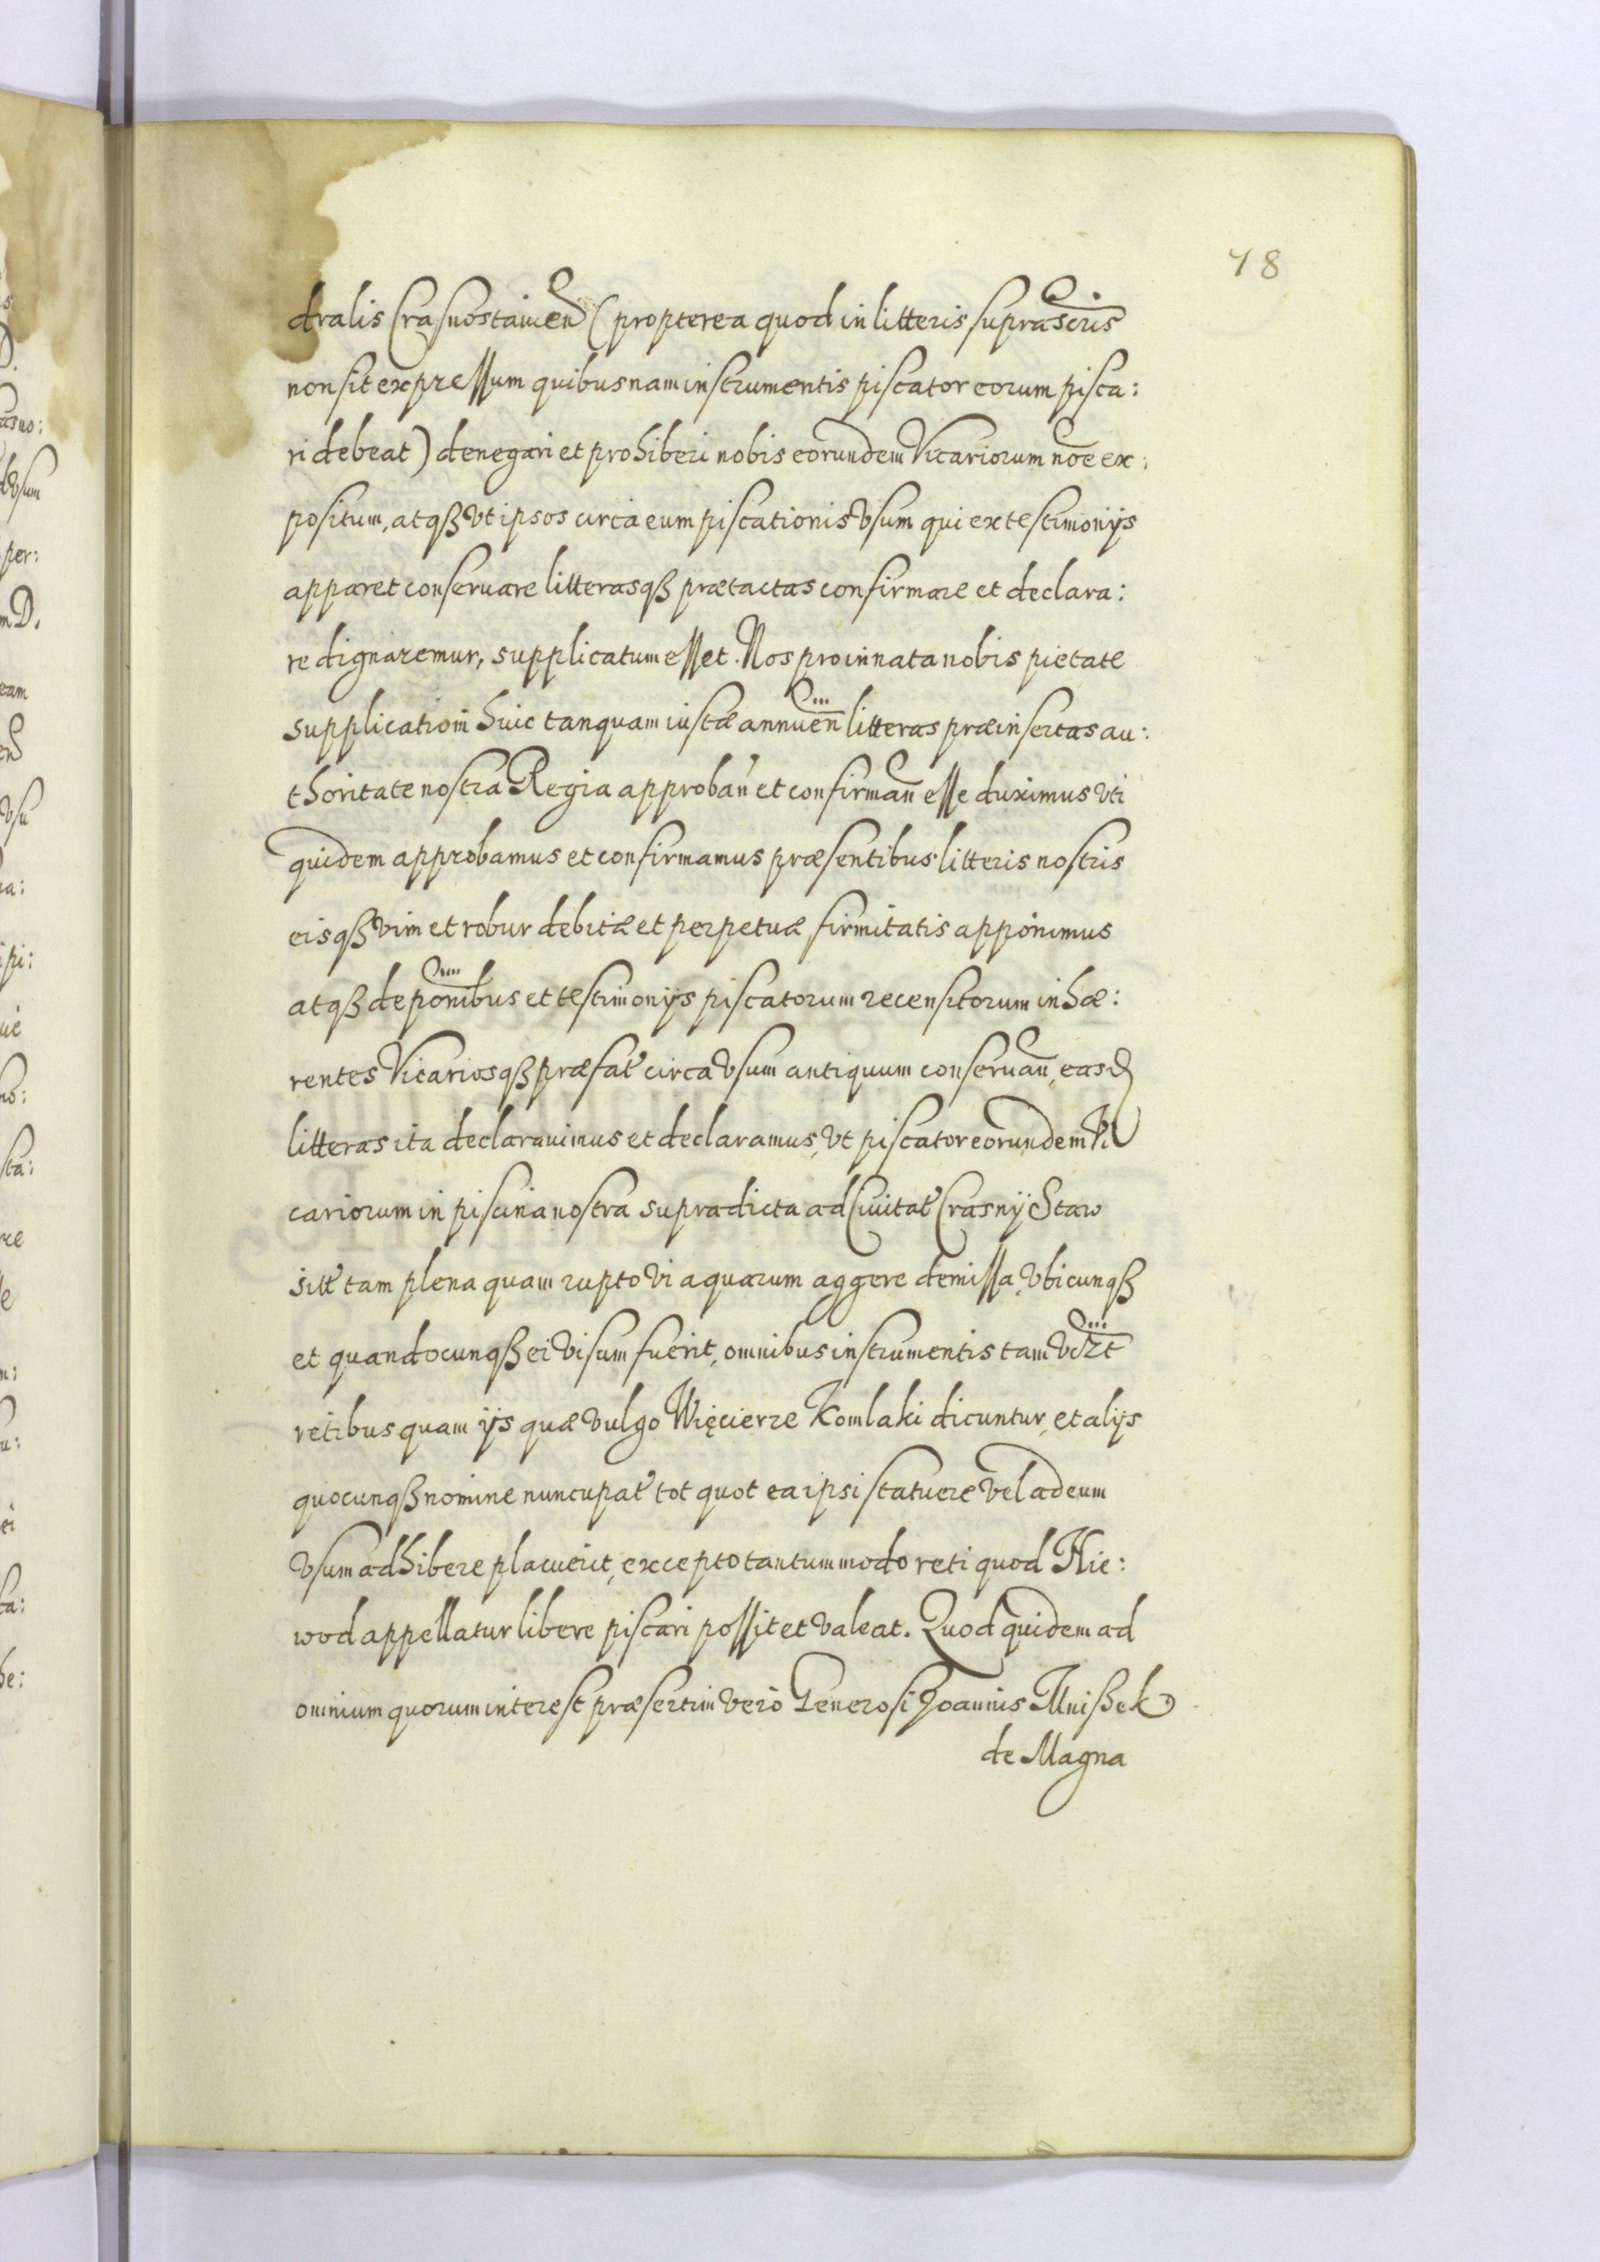 18
dralis Crasnostavien (propterea quod in litteris suprascris
non sit expressum quibusnam instrumentis piscator eorum pisca:
ri debeat) denegari et prohiberi nobis eorundem Vicariorum noe ex:
positum, atqß vt ipsos circa eum piscationis vsum qui ex testimonijs
apparet conservare litterasqß prætactas confirmare et declara:
re dignaremur, supplicatum esset. Nos pro innata nobis pietate
supplicationi huic tanquam iustæ annuen litteras præinsertas au:
thoritate nostra Regia approban et confirman esse duximus vti
quidem approbamus et confirmamus præsentibus litteris nostris
eisqß vim et robur debitæ et perpetuæ firmitatis apponimus
atqß deponibus et testimonijs piscatorum recensitorum inhæ:
rentes Vicariosqß præfat circa vsum antiquum conservan, easd
litteras ita declaravimus et declaramus, vt piscator eorundem Vi
cariorum in piscina nostra supradicta ad Civitat Crasnij Staw
sitt tam plena quam rupto vi aquarum aggere demissa, vbicunqß
et quandocunqß ei visum fuerit, omnibus instrumentis tam vzt
retibus quam ijs quæ vulgo Więcierze Komlaki dicuntur, et alijs
quocunqß nomine nuncupat tot quot ea ipsi statuere vel ad eum
vsum adhibere placuerit, excepto tantummodo reti quod Nie:
wod appellatur libere piscari possit et valeat. Quod quidem ad
omnium quorum interest præsertim vero Generosi Joannis Mnißek
de Magna